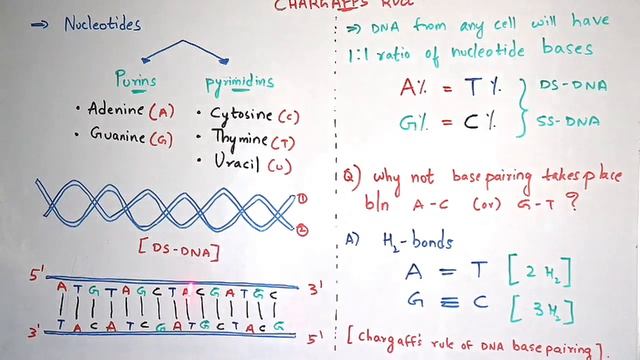 CHARGAFFS RULE
⇒ Nucleotides
Purins
pyrimidins
• Adenine (A)
• Guanine (G)
• Cytosine (C)
• Thymine (T)
• Uracil (U)
①
②
[DS-DNA]
5' A T G T A G C T A C G A T G C 3'
3' T A C A T C G A T G C T A C G 5'
⇒ DNA from any cell will have
1:1 ratio of nucleotide bases
A% = T%
G% = C%
DS-DNA
SS-DNA
Q) why not base pairing takes place
b/n A-C (or) G-T ?
A) H2-bonds
A = T [2 H2]
G ≡ C [3 H2]
[Chargaff's rule of DNA base pairing].